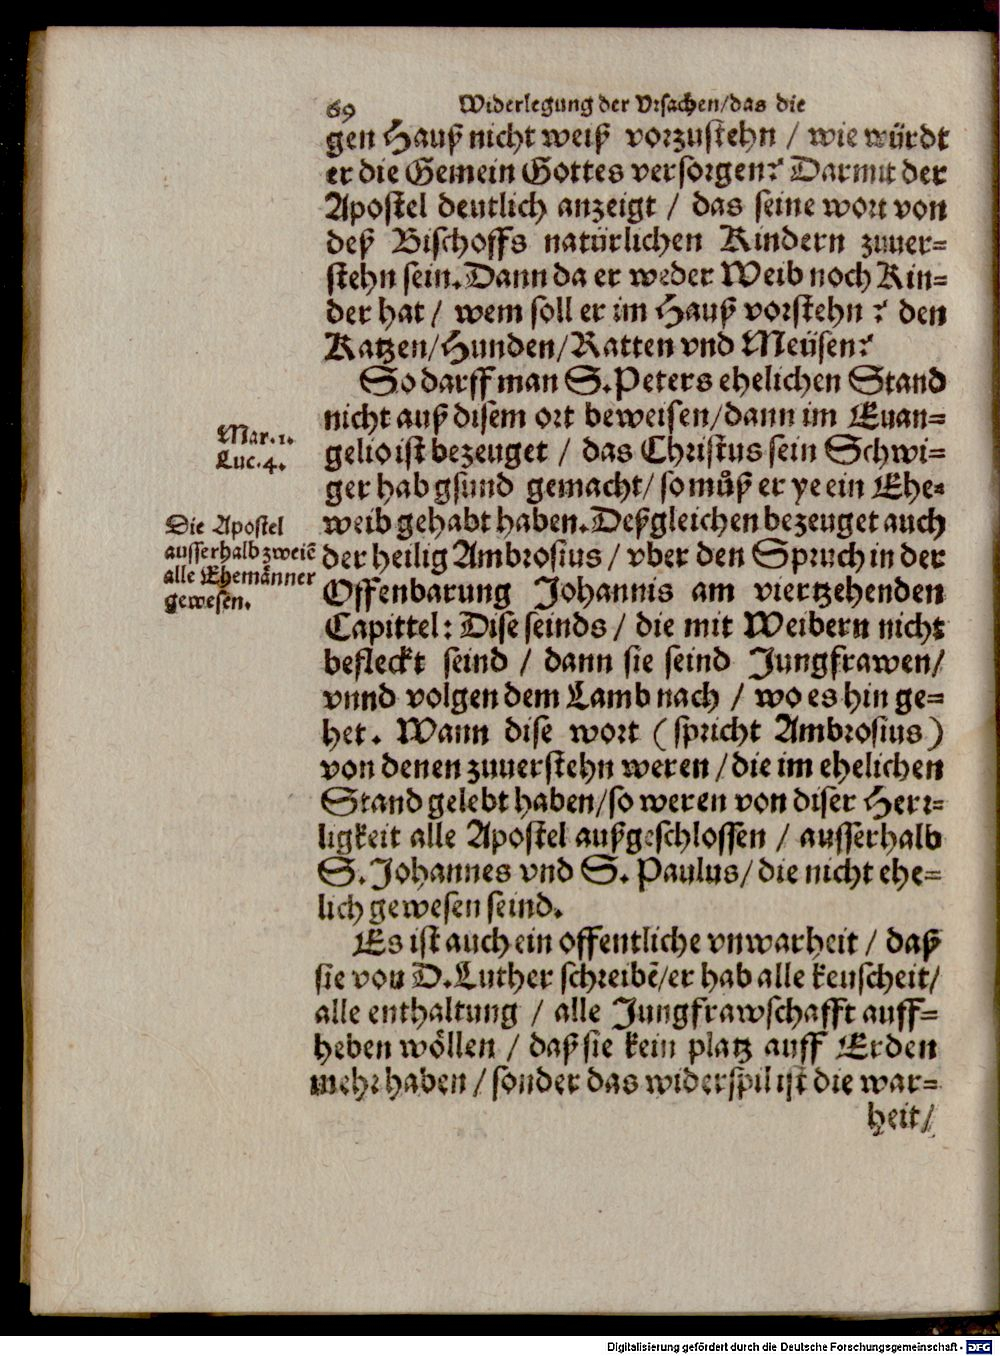 69 Widerlegung der Vrsachen/das die
gen Hauß nicht weiß vorzustehn / wie würdt
er die Gemein Gottes versorgen? Darmit der
Apostel deutlich anzeigt / das seine wort von
deß Bischoffs natürlichen Kindern zuuer-
stehn sein. Dann da er weder Weib noch Kin-
der hat / wem soll er im Hauß vorstehn? den
Katzen/Hunden/Ratten vnd Meüsen?
So darff man S. Peters ehelichen Stand
nicht auß disem ort beweisen/dann im Euan-
gelio ist bezeuget / das Christus sein Schwi-
ger hab gsund gemacht/ so můß er ye ein Ehe-
weib gehabt haben. Deßgleichen bezeuget auch
der heilig Ambrosius / vber den Spruch in der
Offenbarung Johannis am viertzehenden
Capittel: Dise seinds / die mit Weibern nicht
befleckt seind / dann sie seind Jungfrawen/
vnnd volgen dem Lamb nach / wo es hin ge-
het. Wann dise wort (spricht Ambrosius)
von denen zuuerstehn weren / die im ehelichen
Stand gelebt haben/so weren von diser Herr-
ligkeit alle Apostel außgeschlossen / ausserhalb
S. Johannes vnd S. Paulus/ die nicht ehe-
lich gewesen seind.
Es ist auch ein offentliche vnwarheit / daß
sie von D. Luther schreibẽ/er hab alle keuscheit/
alle enthaltung / alle Jungfrawschafft auff-
heben wöllen / daß sie kein platz auff Erden
mehr haben / sonder das widerspil ist die war-
heit/
Mar. 1.
Luc. 4.
Die Apostel
ausserhalb zweiẽ
alle Ehemänner
gewesen.
Digitalisierung gefördert durch die Deutsche Forschungsgemeinschaft - DFG